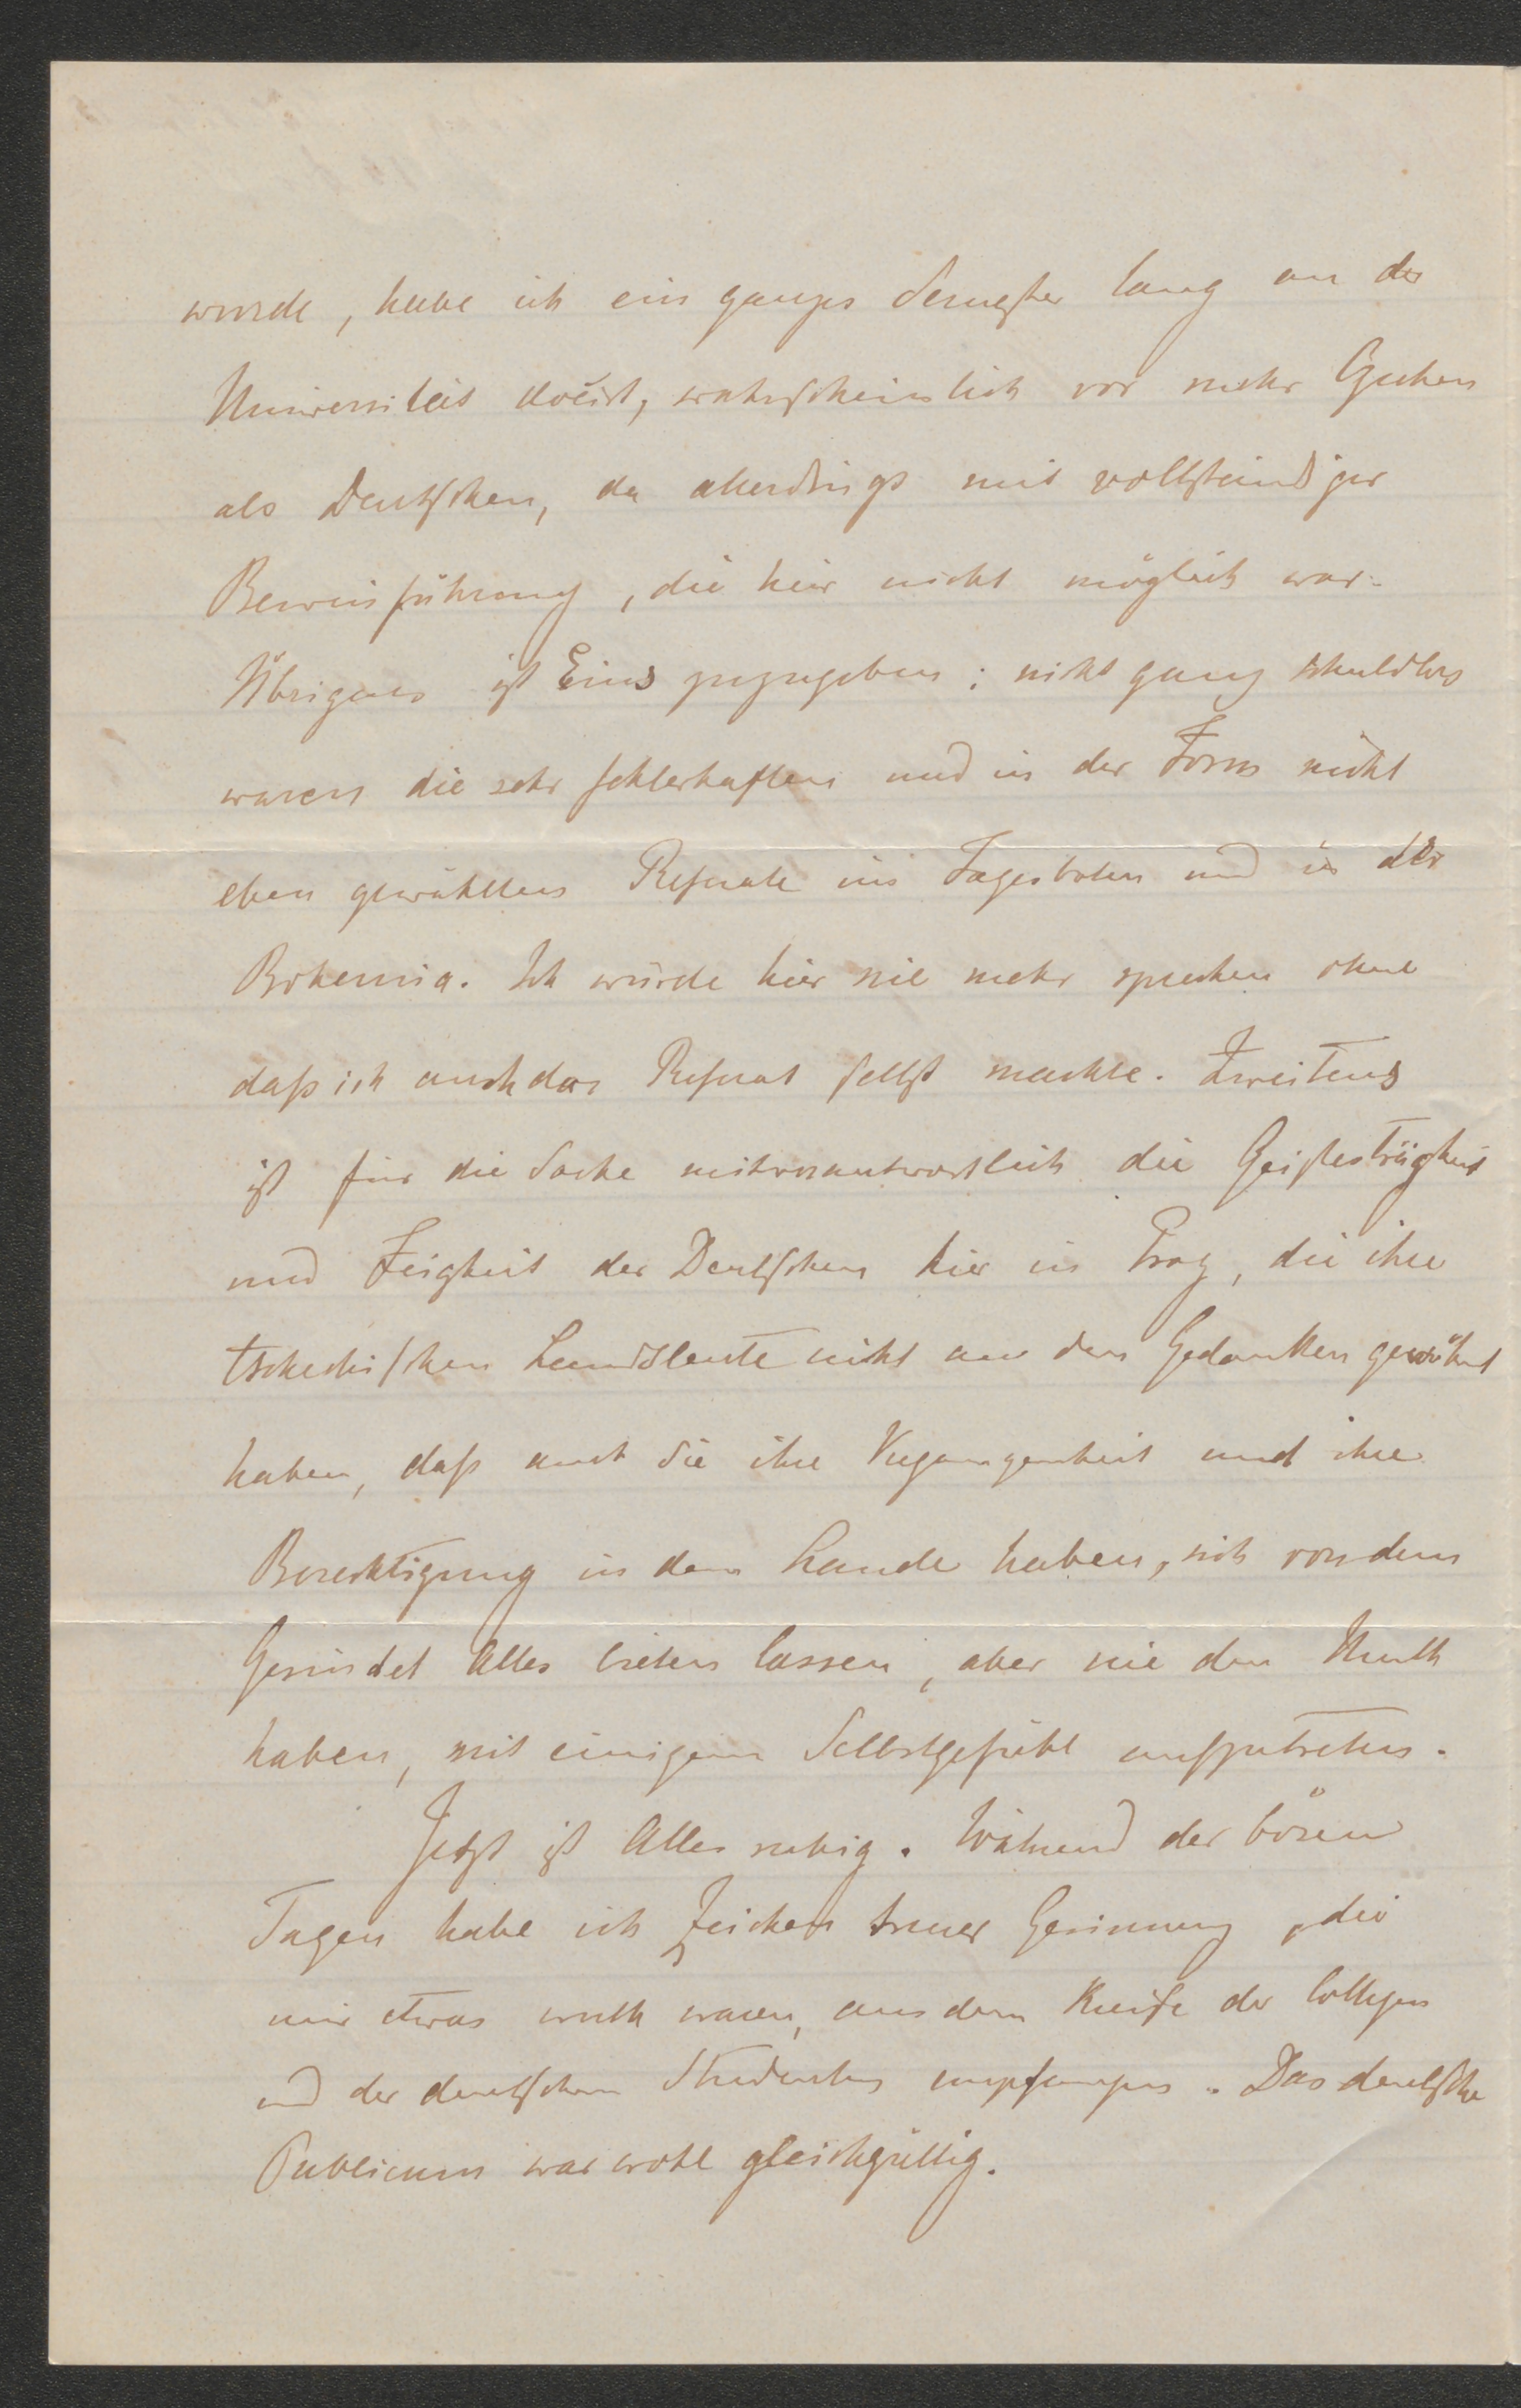 wurde, habe ich ein ganzes Semester lang an der
Universität docirt, wahrscheinlich vor mehr Czechen
als Deutschen, da allerdings mit vollständiger
Beweisführung, die hier nicht möglich war.
Übrigens ist Eins zuzugeben: nicht ganz schuldlos
waren die sehr fehlerhaften und in der Form nicht
eben gewählten Referate im Tagesboten und in der
Bohemia. Ich würde hier nie mehr sprechen ohne
daß ich auch das Referat selbst machte. Zweitens
ist für die Sache mitverantwortlich die Geistesträgheit
und Feigheit der Deutschen hier in Prag, die ihre
tschechischen Landsleute nicht an den Gedanken gewöhnt
haben, daß auch sie ihre Vergangenheit und ihre
Berechtigung in dem Lande haben, sich von dem
Gesindel Alles bieten lassen, aber nie den Muth
haben, mit einigem Selbstgefühl aufzutreten.
Jetzt ist Alles ruhig. Während der bösen
Tagen habe ich Zeichen treuer Gesinnung, die
mir etwas werth waren, aus dem Kreise der Collegen
und der deutschen Studenten empfangen. Das deutsche
Publicum war wohl gleichgültig.